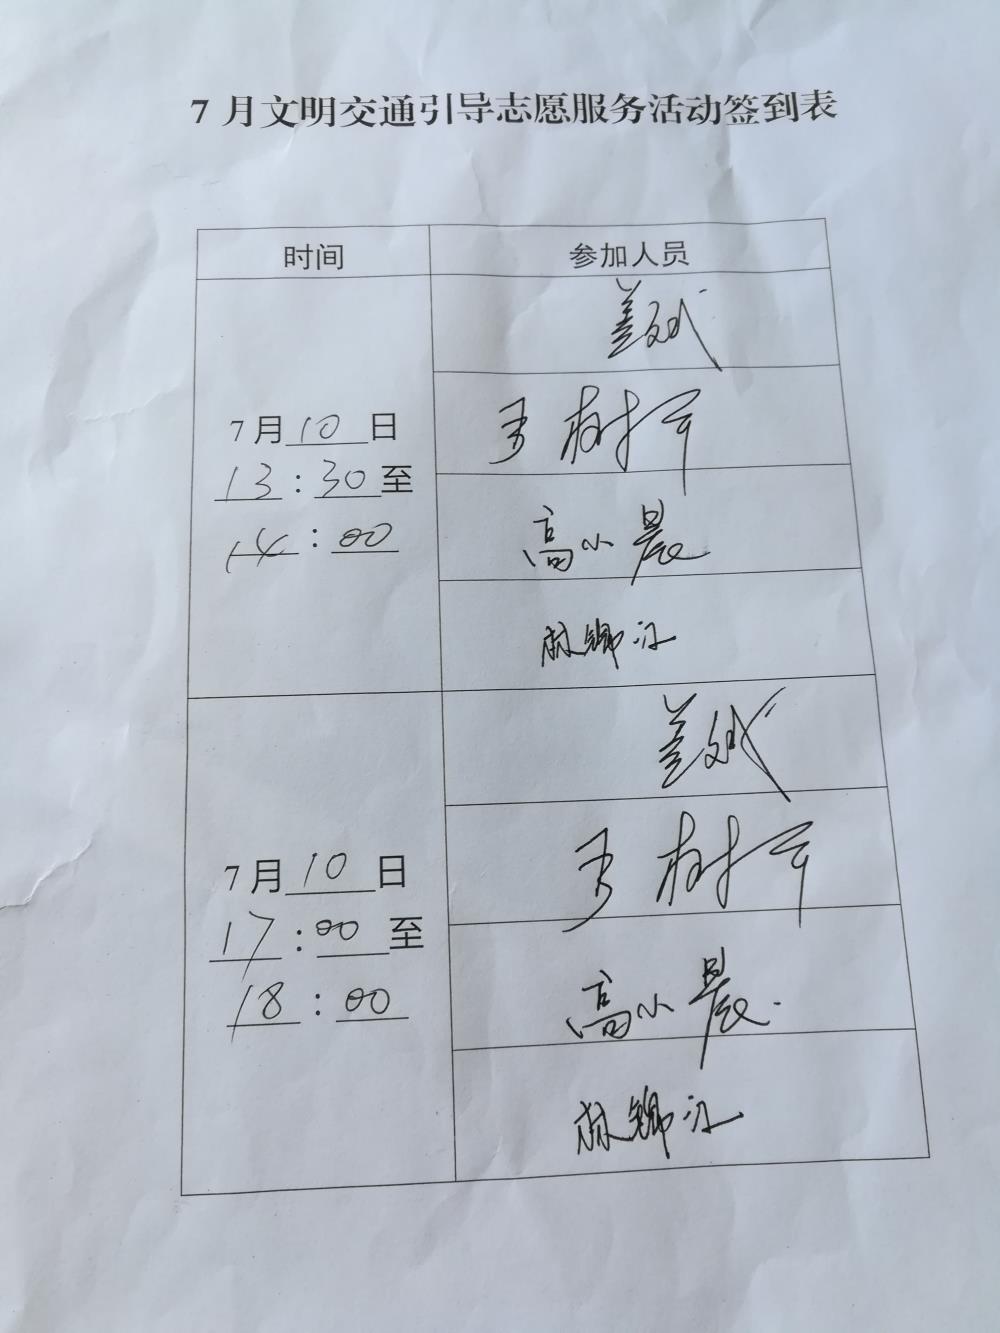 7月文明交通引导志愿服务活动签到表
时间
参加人员
7月10日
13:30至
14:00
姜斌
高小晨
7月10日
17:00至
18:00
姜斌
高小晨